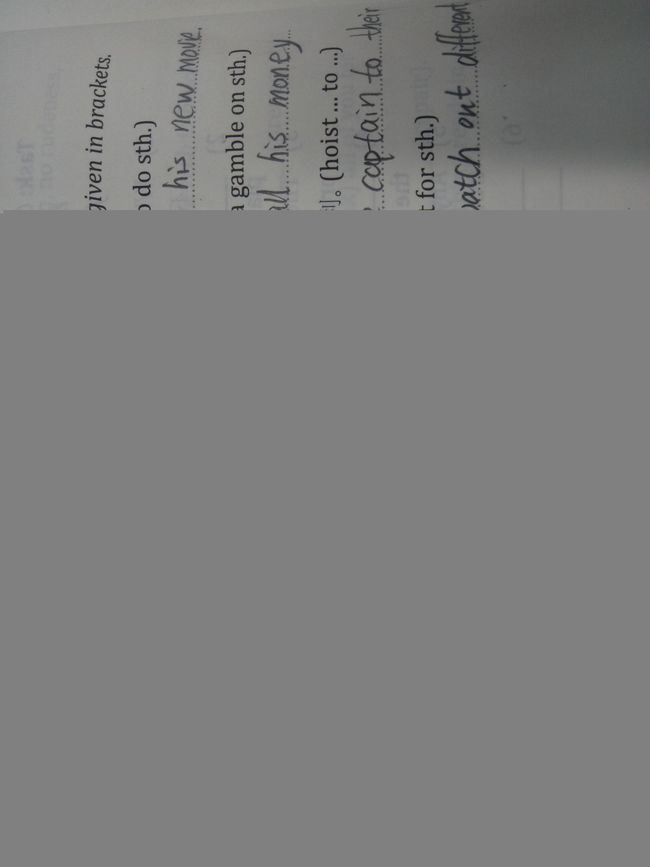 given in brackets.
do sth.)
his new movie.
gamble on sth.)
all his money
(hoist ... to ...)
captain to their
for sth.)
out different